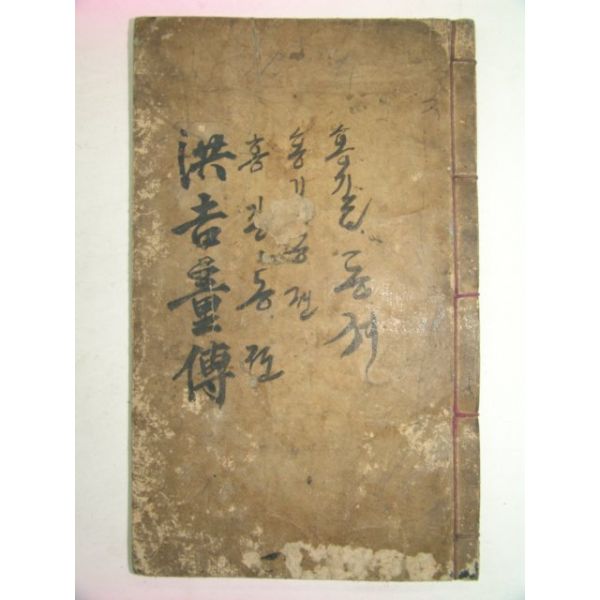 홍길동전
홍기동젼
홍길동젼
洪吉童傳